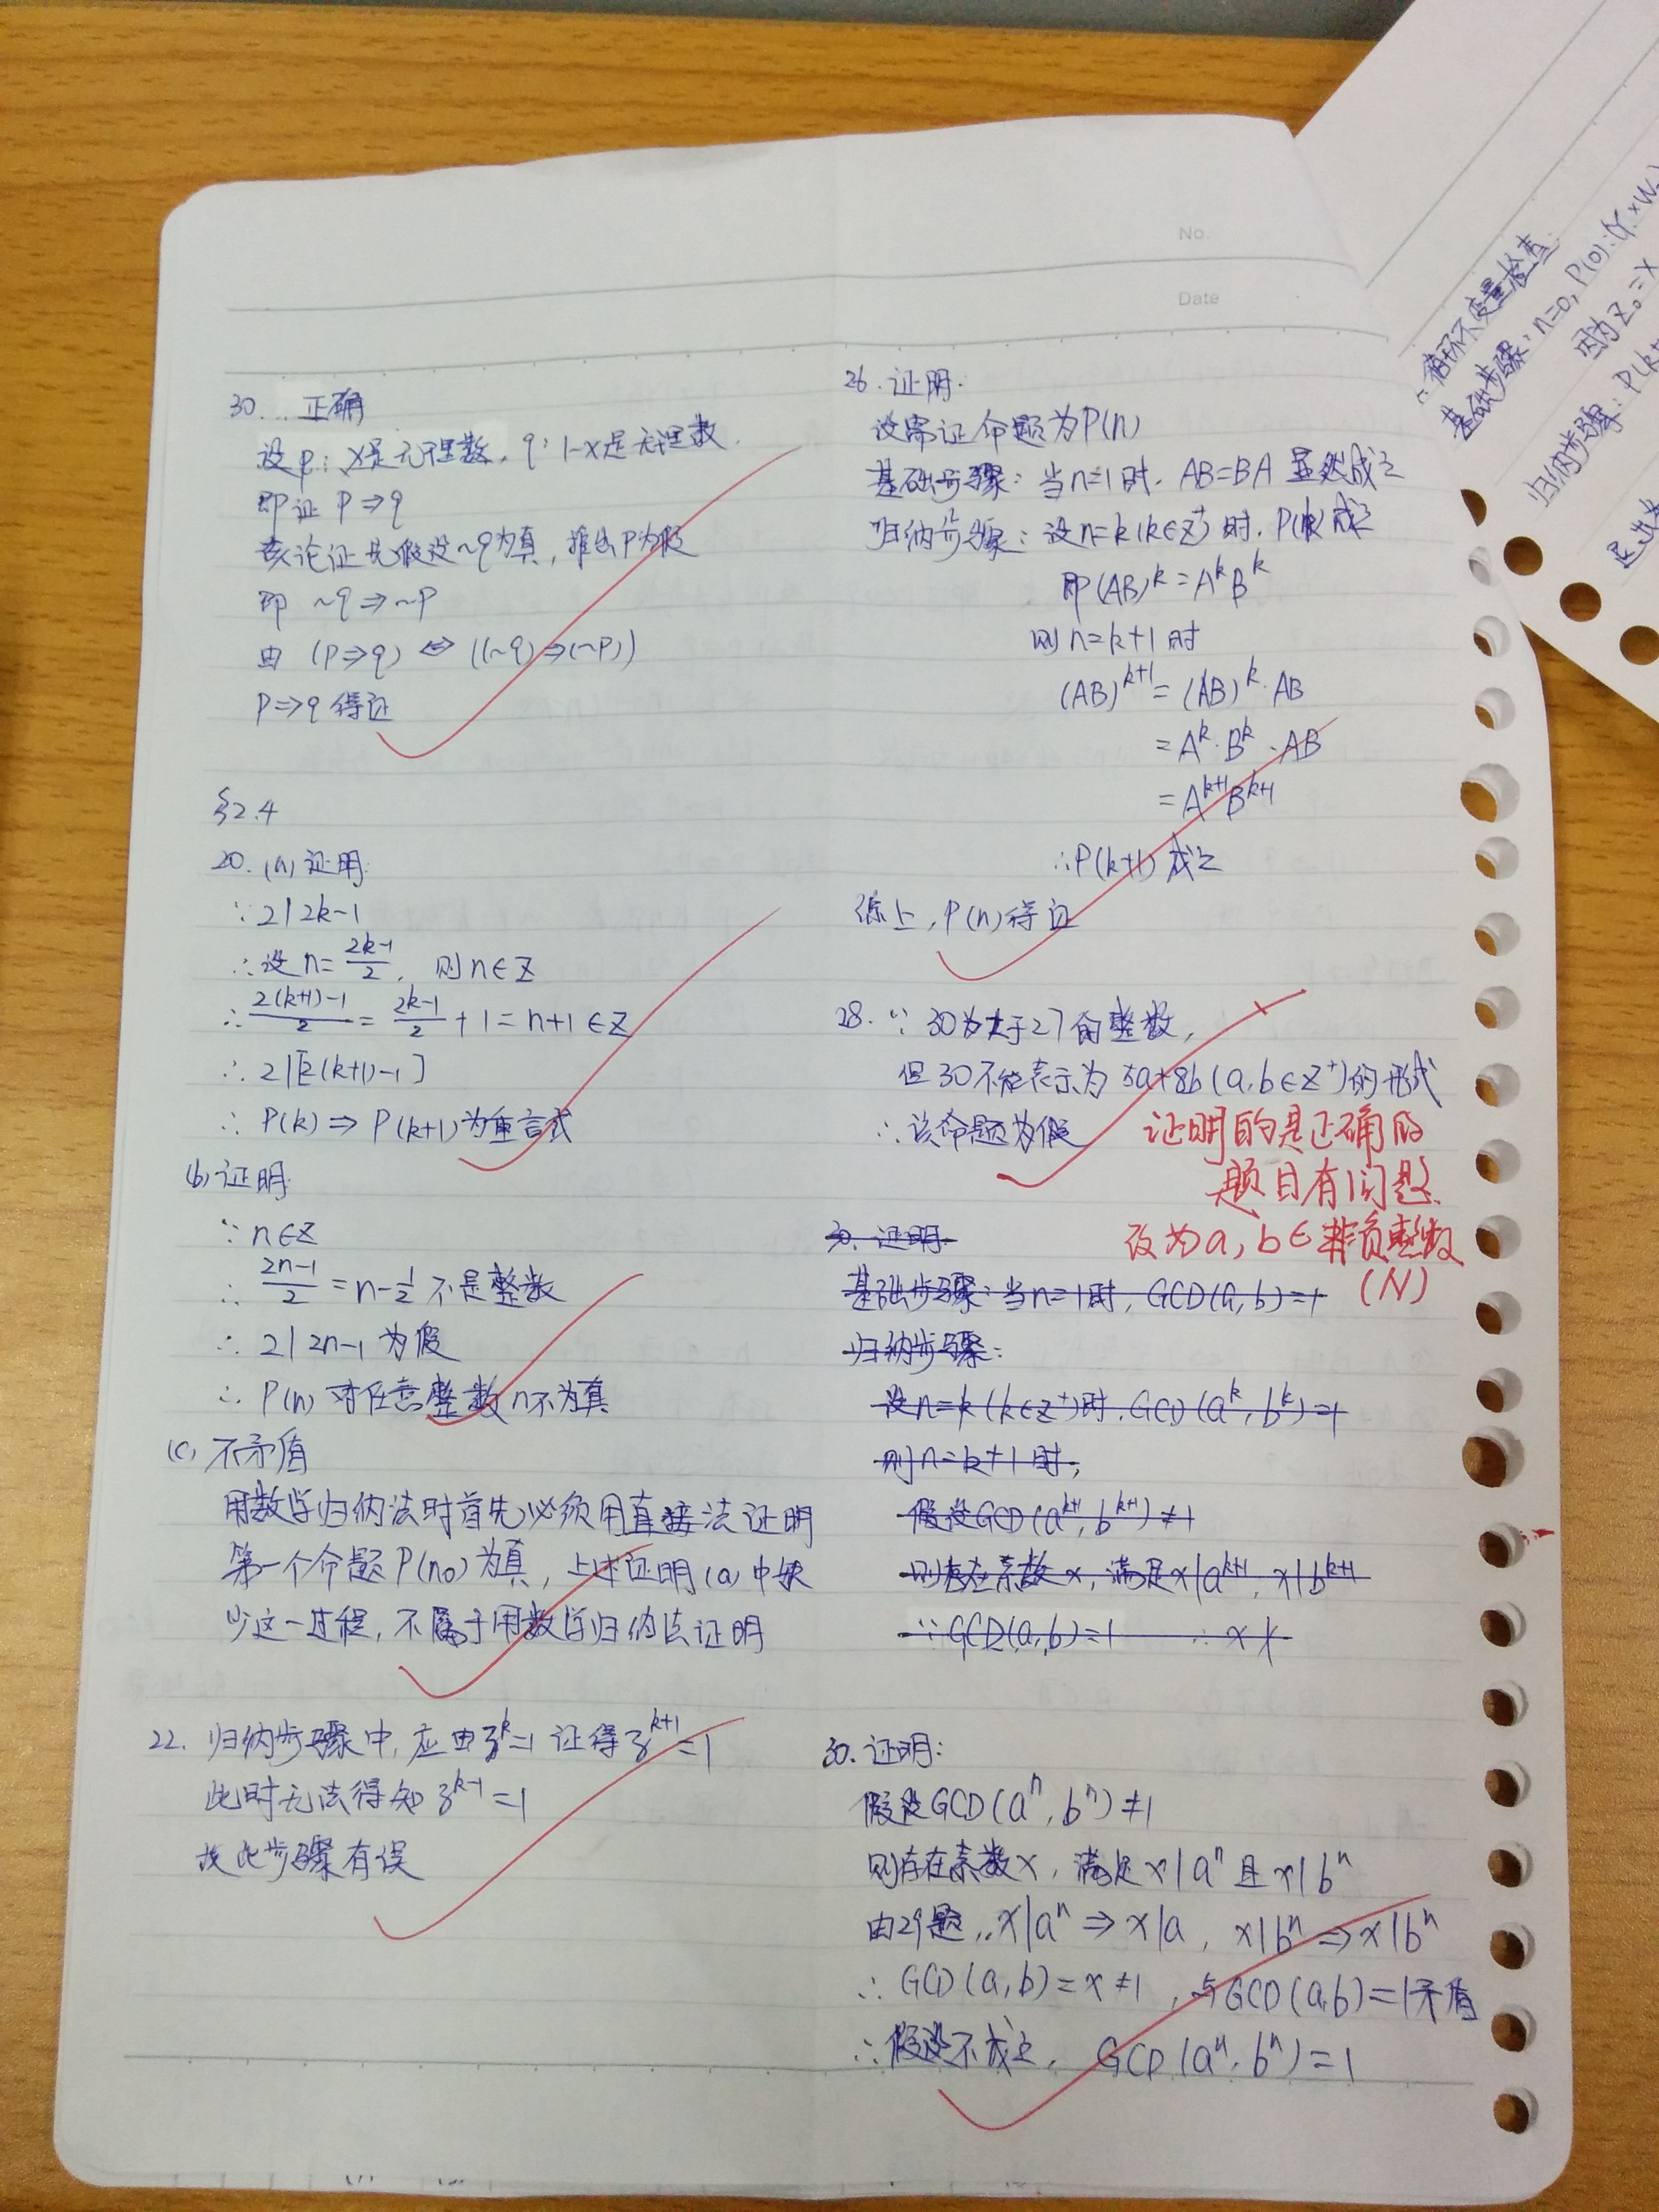 No.
Date
30. 正确
设p: x是无理数, q: 1-x是无理数.
即证 P⇒q
该论证先假设~q为真, 推出P为假
即 ~q⇒~P
由 (P⇒q) ⇔ ((~q)⇒(~P))
P⇒q 得证
§2.4
20. (a) 证明:
∵ 2|2k-1
∴ 设 n= (2k-1)/2, 则 n∈Z
∴ (2(k+1)-1)/2 = (2k-1)/2 + 1 = n+1 ∈Z
∴ 2|[2(k+1)-1]
∴ P(k) ⇒ P(k+1) 为重言式
(b) 证明:
∵ n∈Z
∴ (2n-1)/2 = n-1/2 不是整数
∴ 2|2n-1 为假
∴ P(n) 对任意整数n不为真
(c) 不矛盾
用数学归纳法时首先必须用直接法证明
第一个命题P(n₀)为真, 上述证明(a)中缺
少这一过程, 不属于用数学归纳法证明
22. 归纳步骤中, 应由z^k=1 证得z^(k+1)=1
此时无法得知 z^(k-1)=1
故此步骤有误
26. 证明:
设需证命题为P(n)
基础步骤: 当n=1时, AB=BA 显然成立
归纳步骤: 设n=k(k∈Z⁺)时, P(k)成立
即(AB)^k = A^k B^k
则 n=k+1 时
(AB)^(k+1) = (AB)^k · AB
= A^k · B^k · AB
= A^(k+1) B^(k+1)
∴ P(k+1) 成立
综上, P(n)得证
28. ∵ 30为大于27的整数,
但30不能表示为 5a+8b (a,b∈Z⁺)的形式
∴ 该命题为假
证明的是正确的
题目有问题.
改为a,b∈非负整数
(N)
30. 证明:
基础步骤: 当n=1时, GCD(a,b)=1
归纳步骤:
设n=k(k∈Z⁺)时, GCD(a^k, b^k)=1
则n=k+1时,
假设GCD(a^(k+1), b^(k+1))≠1
则存在素数x, 满足x|a^(k+1), x|b^(k+1)
∵ GCD(a,b)=1 ∴ x∤
30. 证明:
假设GCD(a^n, b^n)≠1
则存在素数x, 满足x|a^n 且 x|b^n
由29题, x|a^n ⇒ x|a, x|b^n ⇒ x|b^n
∴ GCD(a,b)=x≠1, 与GCD(a,b)=1矛盾
∴ 假设不成立, GCD(a^n, b^n)=1
循环不变量检查:
基础步骤: n=0, P(0):
因为Z₀=X
归纳步骤: